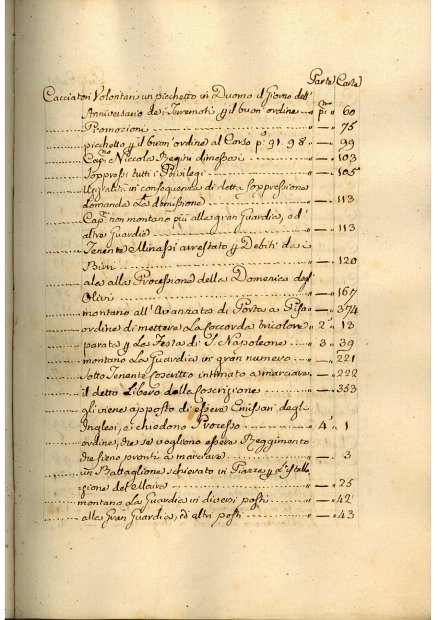 Parte Carte
Cacciatori Volontari un picchetto in Duomo il Giorno dell'
Anniversario de i Turumoti, y il buon ordine pᵃ 60
Promozioni " — 75
picchetto y il buon ordine al Corso pᵒ 91. 98 " — 99
Capⁿᵒ Niccola Regini dimessosi " — 103
soppressi tutti i Privilegi " — 105
Uffialità in conseguenza di detta soppressione
domanda la dimissione " — 113
Capⁿⁱ non montano più alla gran Guardia, o d'
altre Guardie " — 113
Tenente Minassi arrestato y Debiti da i
Birri " — 120
ala alla Processione della Domenica degl'
Olivi " — 167
montano all'Avanzata di Porta a Pisa " — 374
ordine di mettere la coccarda tricolore " 2ᵃ " 13
parata y la Festa di S. Napoleone " 3 " 39
montano la Guardia in gran numero " — 221
Sotto Tenente coscritto intimato a marciare " — 222
il detto Libero dalla Coscrizione " — 353
gli viene apposto di essere Emissari degl'
Inglesi, e chiedono Processo " 4ᵃ " 1
ordine, che se vogliono essere Reggimento
che sieno pronti a marciare " — 3
un Battaglione schierato in Piazza y l'Istalla-
zione del Maire " — 25
montano la Guardia in diversi posti " — 42
alla Gran Guardia, ed altri posti " — 43